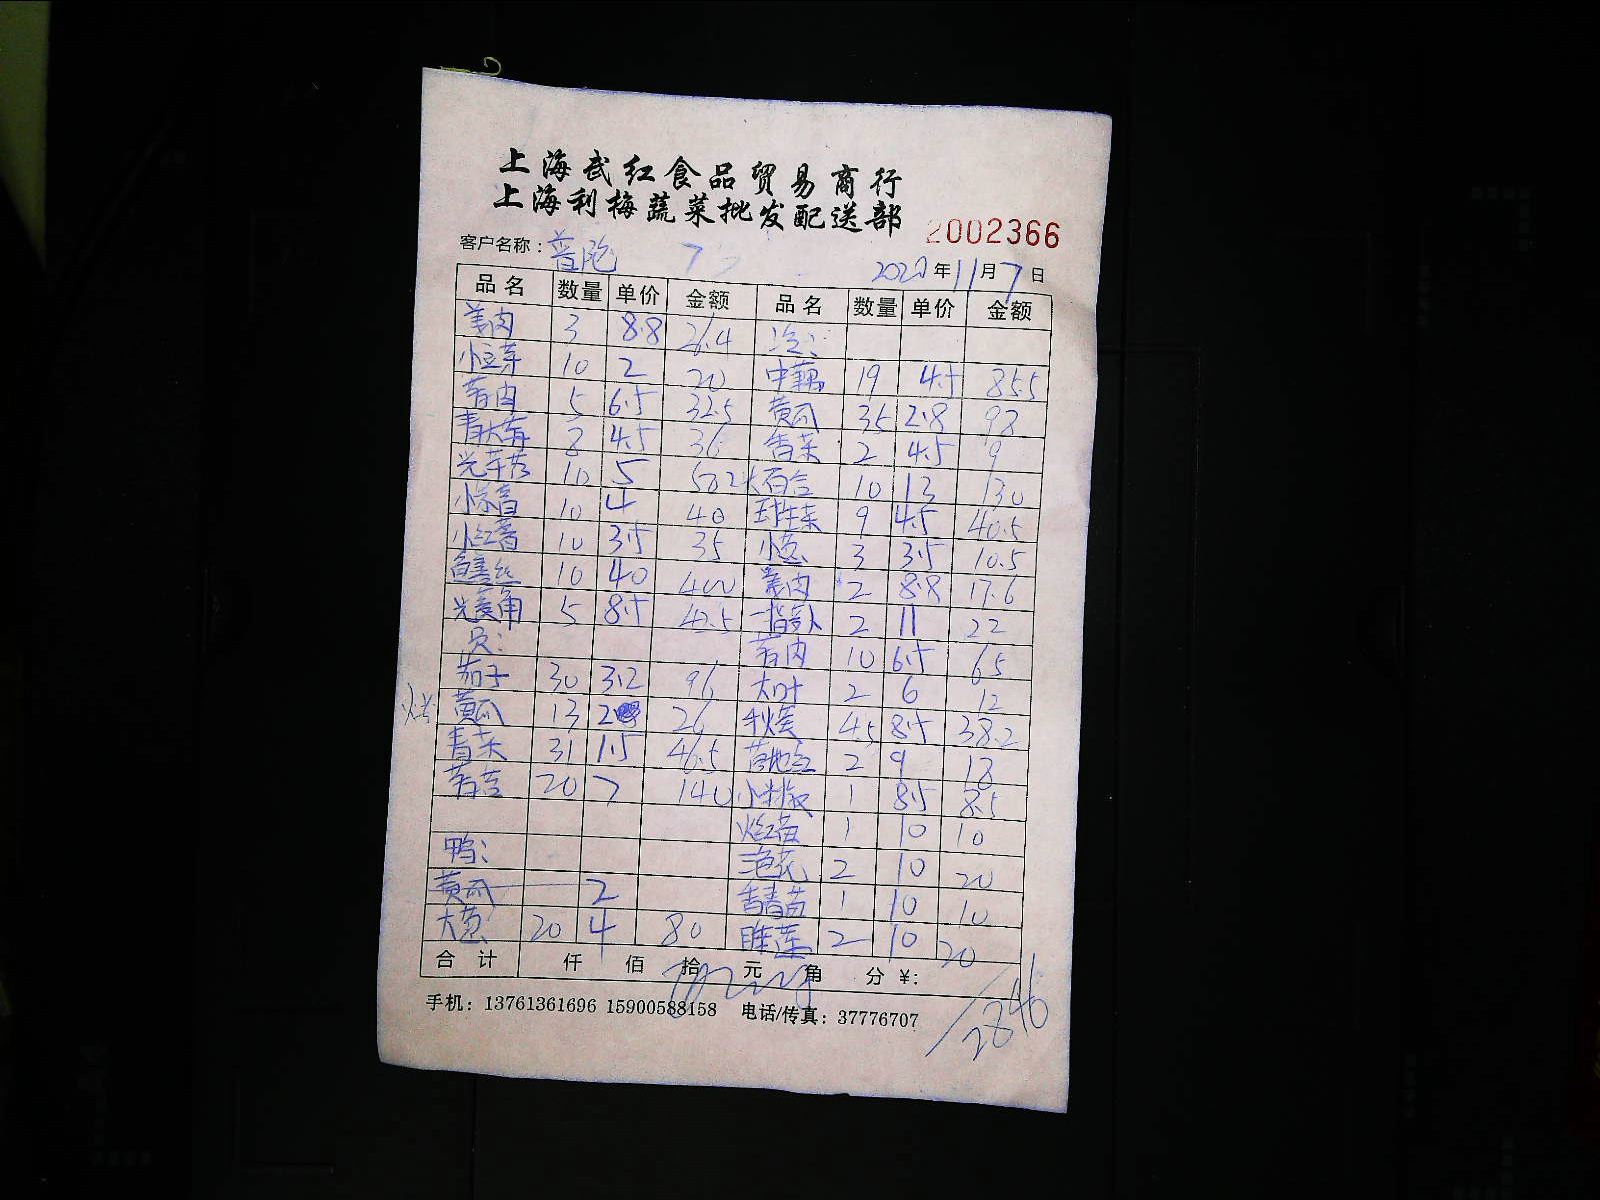 上海武红食品贸易商行
上海利梅蔬菜批发配送部
2002366
客户名称：普陀 2020年11月7日
品名 数量 单价 金额 品名 数量 单价 金额
姜肉 3 8.8 26.4
小豆芽 10 2 20 中藕 19 4.5 85.5
5 6.5 32.5 黄瓜 35 2.8 98
8 4.5 36 香菜 2 4.5 9
光芋艿 10 5 50 大百合 10 13 130
10 4 40 球生菜 9 4.5 40.5
小红薯 10 3.5 35 小葱 3 3.5 10.5
鳝丝 10 40 400 姜肉 2 8.8 17.6
光菱角 5 8.5 42.5 2 11 22
10 6.5 65
茄子 30 3.2 96 大叶 2 6 12
黄瓜 13 2 26 秋葵 4.5 8.5 38.2
青菜 31 1.5 46.5 2 9 18
20 7 140 小米椒 1 8.5 8.5
1 10 10
鸭： 2 10 20
黄瓜 2 1 10 10
大葱 20 4 80 睡莲 2 10 20
合计 仟 佰 拾 元 角 分 ¥:
2846
手机：13761361696 15900588158 电话/传真：37776707